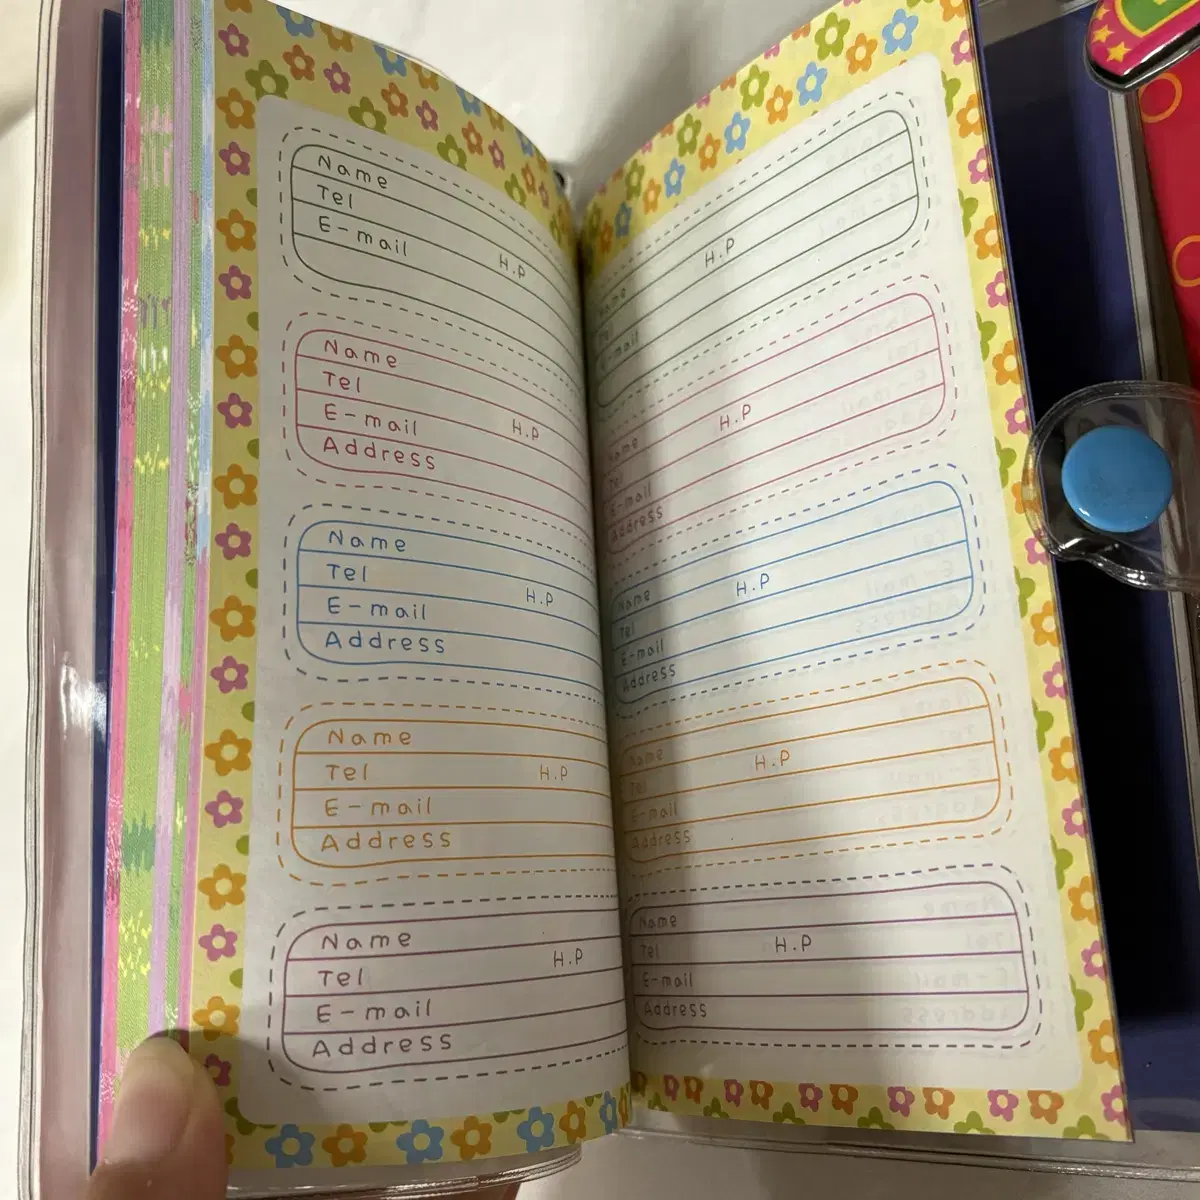 Name
Tel
E-mail
H.P
Name
Tel
E-mail
H.P
Address
Name
Tel
H.P
E-mail
Address
Name
Tel H.P
E-mail
Address
Name
Tel H.P
E-mail
Address
H.P
Name
Tel
E-mail
H.P
Name
Tel
E-mail
Address
H.P
Name
Tel
E-mail
Address
H.P
Name
Tel
E-mail
Address
Name
Tel H.P
E-mail
Address